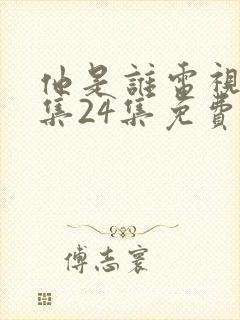 他是誰電視
集24集免費
傅志寰